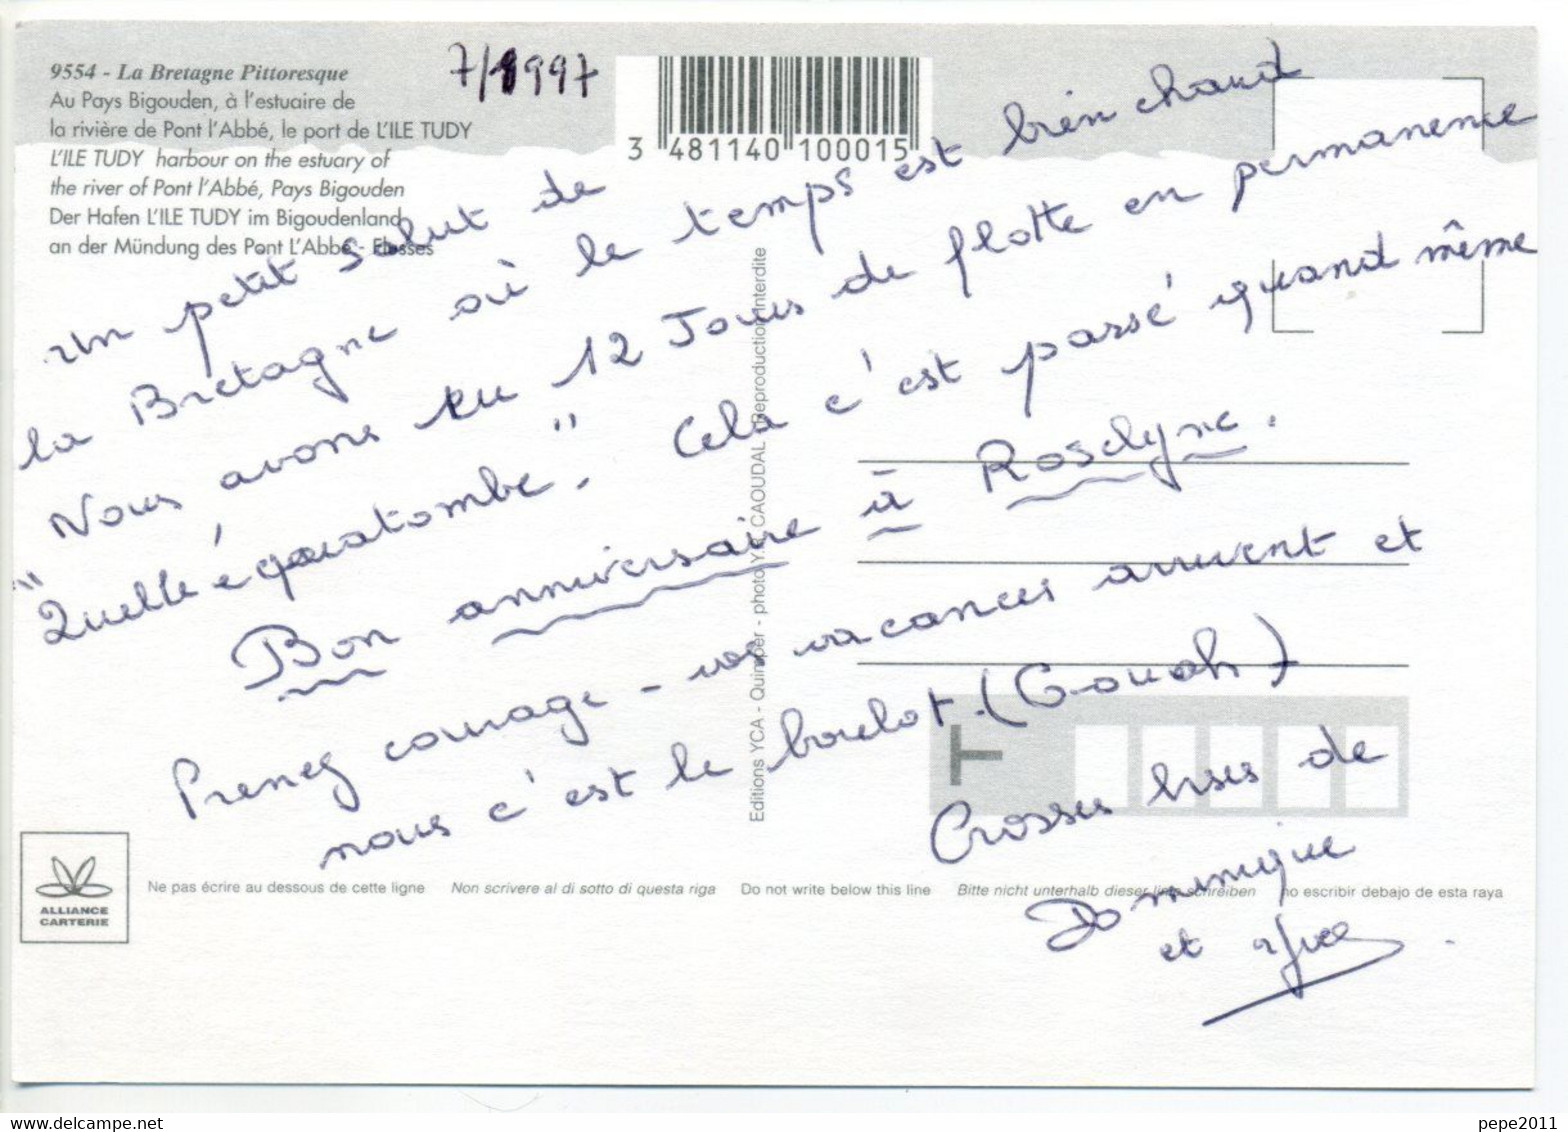 9554 - La Bretagne Pittoresque
Au Pays Bigouden, à l'estuaire de
la rivière de Pont l'Abbé, le port de L'ILE TUDY
L'ILE TUDY harbour on the estuary of
the river of Pont l'Abbé, Pays Bigouden
Der Hafen L'ILE TUDY im Bigoudenland
an der Mündung des Pont L'Abbé - Flusses
7/1997
3 481140 100015
un petit salut de
la Bretagne où le temps est bien chaud
Nous avons eu 12 Jours de flotte en permanence
"Quelle équatombe." Cela c'est passé quand même
Bon anniversaire à Roselyne.
Prenez courage - vos vacances arrivent et
nous c'est le boulot. (Gouah)
Grosses bises de
Dominique
et Yves
Editions YCA - Quimper - photo Y.R. CAOUDAL Reproduction interdite
T
ALLIANCE
CARTERIE
Ne pas écrire au dessous de cette ligne Non scrivere al di sotto di questa riga Do not write below this line Bitte nicht unterhalb dieser linie schreiben no escribir debajo de esta raya
pepe2011